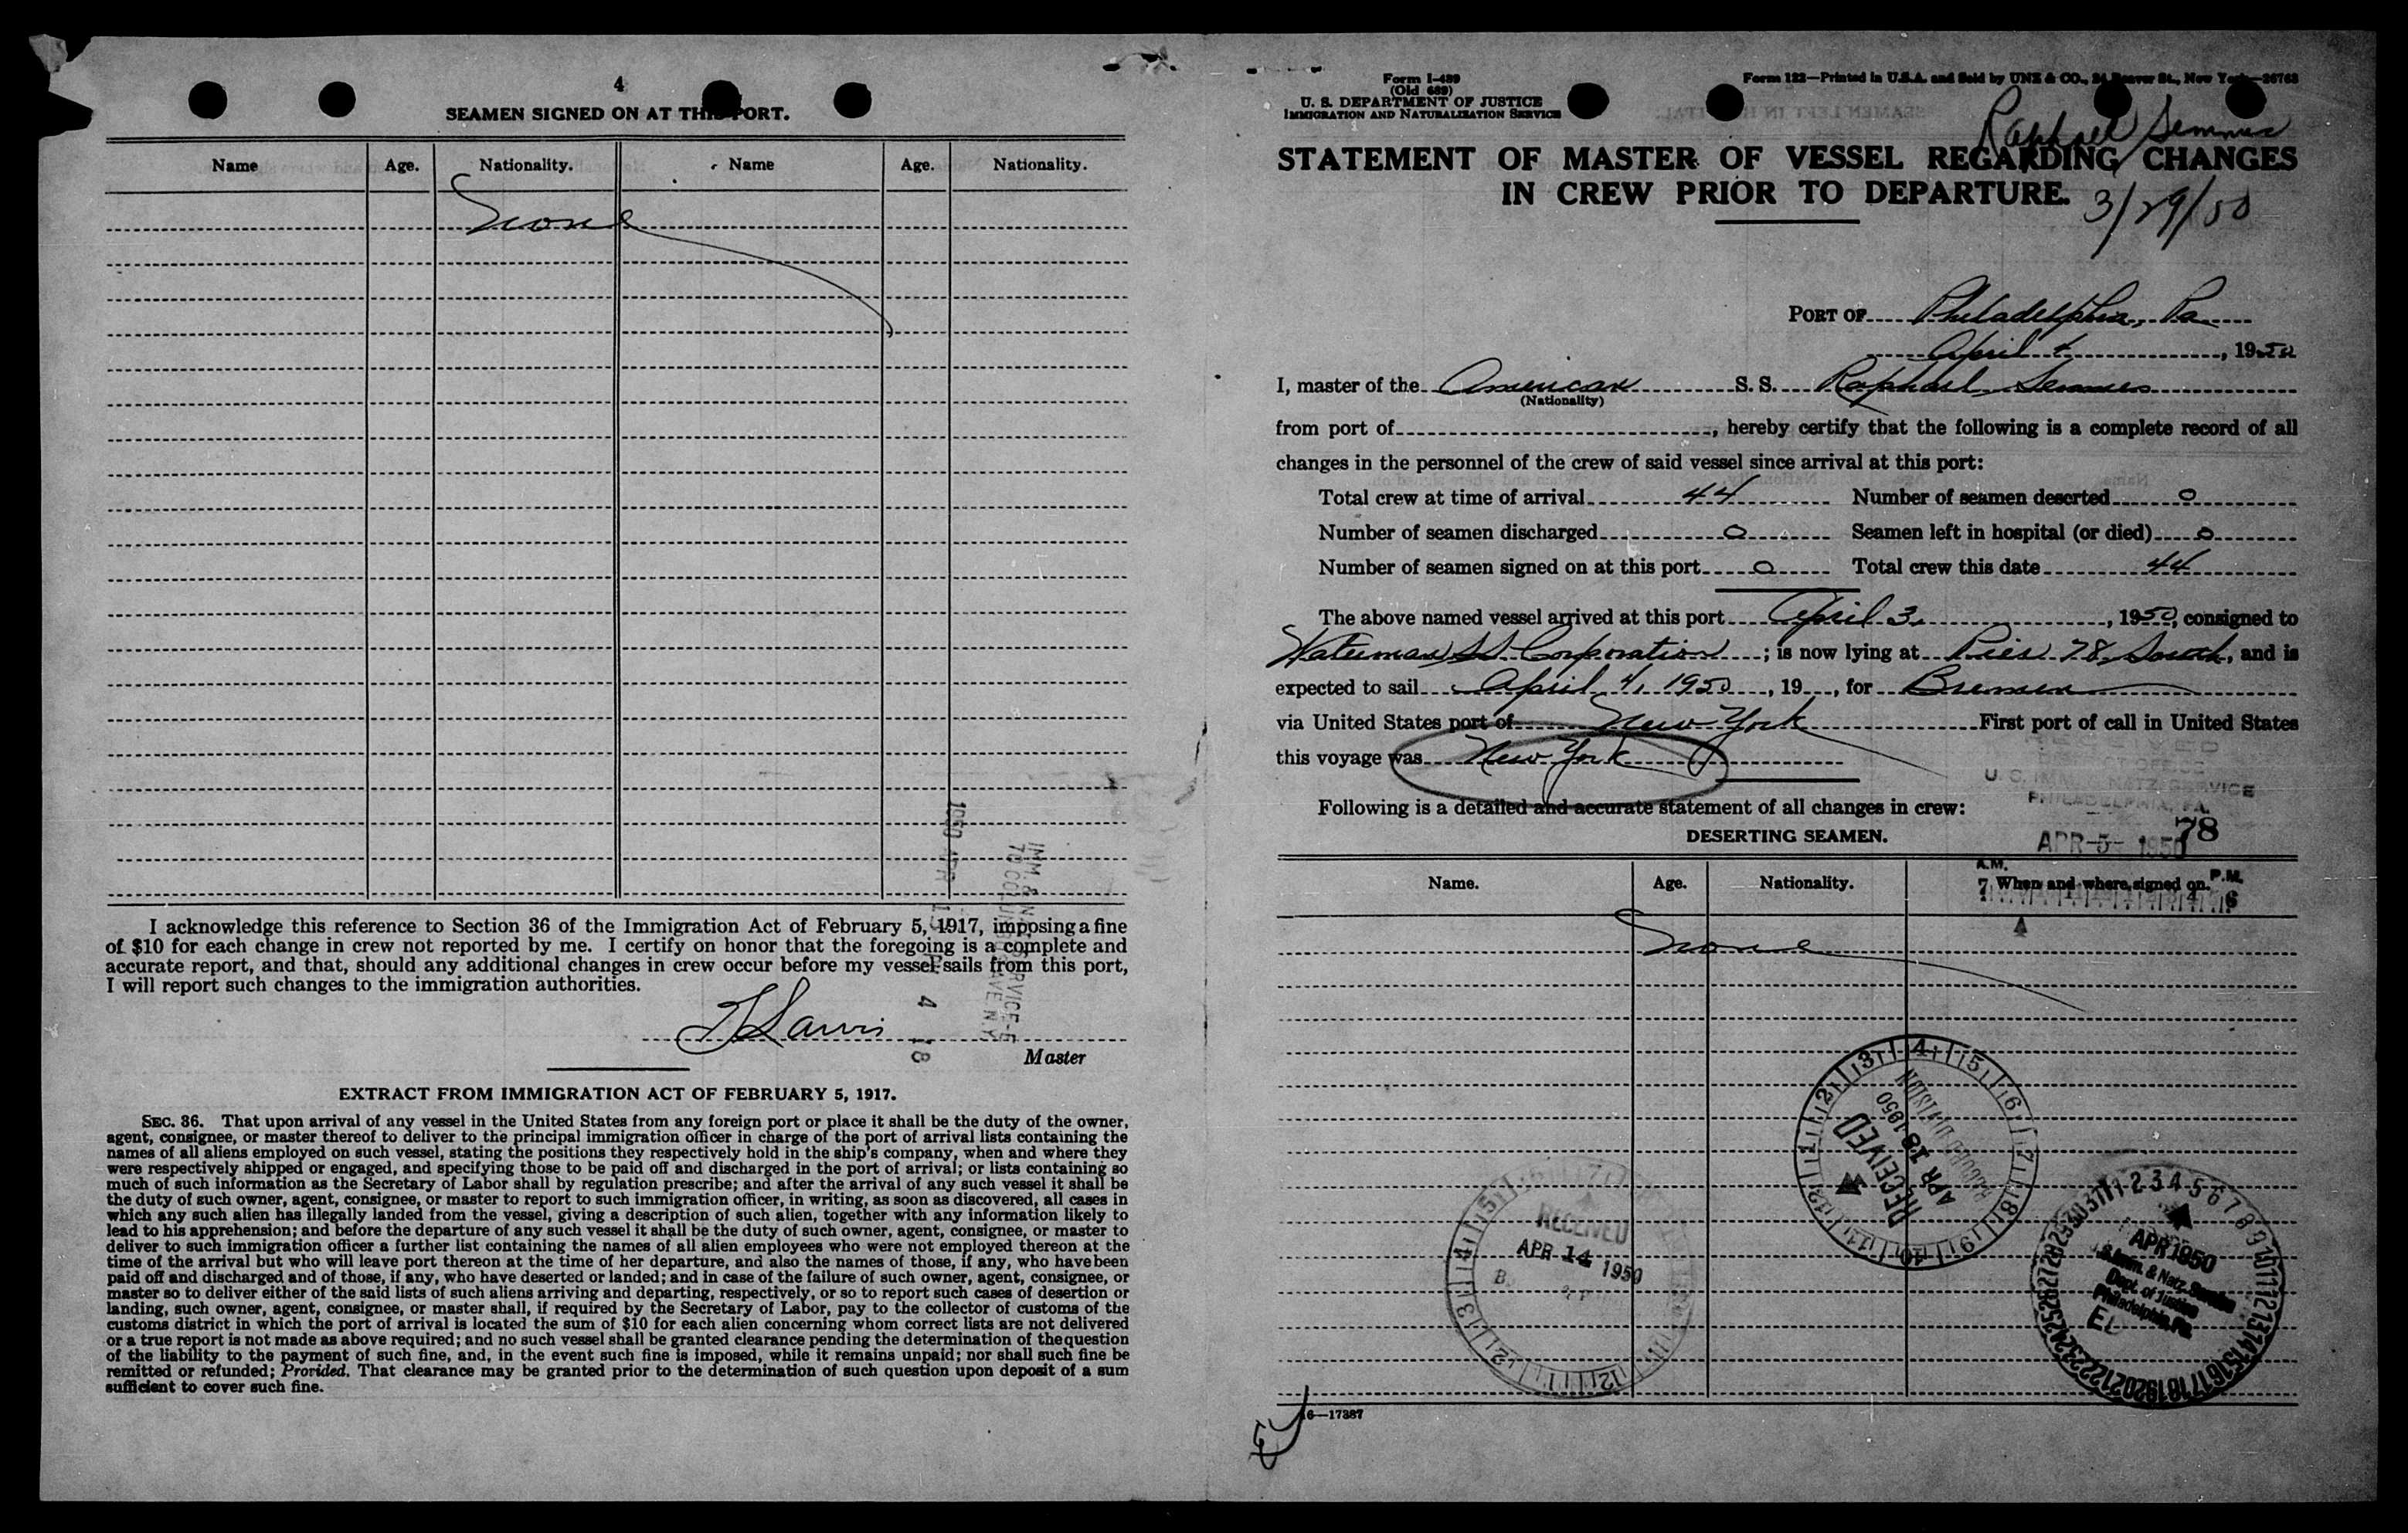 4
SEAMEN SIGNED ON AT THIS PORT.
Name Age. Nationality. Name Age. Nationality.
None
I acknowledge this reference to Section 36 of the Immigration Act of February 5, 1917, imposing a fine
of $10 for each change in crew not reported by me. I certify on honor that the foregoing is a complete and
accurate report, and that, should any additional changes in crew occur before my vessel sails from this port,
I will report such changes to the immigration authorities.
Master
EXTRACT FROM IMMIGRATION ACT OF FEBRUARY 5, 1917.
SEC. 36. That upon arrival of any vessel in the United States from any foreign port or place it shall be the duty of the owner,
agent, consignee, or master thereof to deliver to the principal immigration officer in charge of the port of arrival lists containing the
names of all aliens employed on such vessel, stating the positions they respectively hold in the ship's company, when and where they
were respectively shipped or engaged, and specifying those to be paid off and discharged in the port of arrival; or lists containing so
much of such information as the Secretary of Labor shall by regulation prescribe; and after the arrival of any such vessel it shall be
the duty of such owner, agent, consignee, or master to report to such immigration officer, in writing, as soon as discovered, all cases in
which any such alien has illegally landed from the vessel, giving a description of such alien, together with any information likely to
lead to his apprehension; and before the departure of any such vessel it shall be the duty of such owner, agent, consignee, or master to
deliver to such immigration officer a further list containing the names of all alien employees who were not employed thereon at the
time of the arrival but who will leave port thereon at the time of her departure, and also the names of those, if any, who have been
paid off and discharged and of those, if any, who have deserted or landed; and in case of the failure of such owner, agent, consignee, or
master so to deliver either of the said lists of such aliens arriving and departing, respectively, or so to report such cases of desertion or
landing, such owner, agent, consignee, or master shall, if required by the Secretary of Labor, pay to the collector of customs of the
customs district in which the port of arrival is located the sum of $10 for each alien concerning whom correct lists are not delivered
or a true report is not made as above required; and no such vessel shall be granted clearance pending the determination of the question
of the liability to the payment of such fine, and, in the event such fine is imposed, while it remains unpaid; nor shall such fine be
remitted or refunded; Provided, That clearance may be granted prior to the determination of such question upon deposit of a sum
sufficient to cover such fine.
Form I-489
(Old 689)
U. S. DEPARTMENT OF JUSTICE
IMMIGRATION AND NATURALIZATION SERVICE
Form 122—Printed in U.S.A. and Sold by UNZ & CO., 24 Beaver St., New York—26763
Raphael Semmes
STATEMENT OF MASTER OF VESSEL REGARDING CHANGES
IN CREW PRIOR TO DEPARTURE.
3/29/50
PORT OF Philadelphia, Pa.
April 4, 1950
I, master of the American S. S. Raphael Semmes
(Nationality)
from port of , hereby certify that the following is a complete record of all
changes in the personnel of the crew of said vessel since arrival at this port:
Total crew at time of arrival 44 Number of seamen deserted 0
Number of seamen discharged 0 Seamen left in hospital (or died) 0
Number of seamen signed on at this port 0 Total crew this date 44
The above named vessel arrived at this port April 3, 1950, consigned to
Waterman SS Corporation ; is now lying at Pier 78 South, and is
expected to sail April 4, 1950, 19 , for Bremen
via United States port of New York First port of call in United States
this voyage was New York
U. S. IMM. & NATZ. SERVICE
PHILADELPHIA, PA.
Following is a detailed and accurate statement of all changes in crew:
78
DESERTING SEAMEN.
APR-5- 1950
A.M. P.M.
Name. Age. Nationality. When and where signed on.
None
RECEIVED
APR 18 1950
RECEIVED
APR 14 1950
APR 1950
Imm. & Natz. Service
Dept. of Justice
Philadelphia, Pa.
16—17387